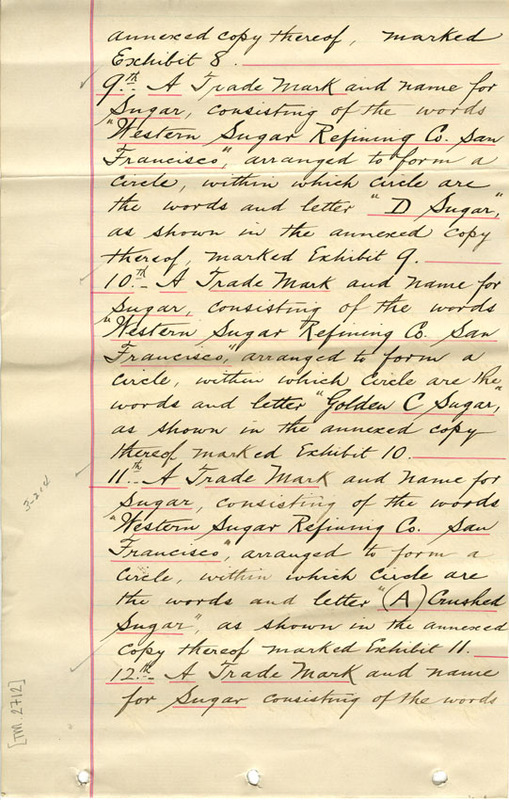 annexed copy thereof, marked
Exhibit 8.
9th. A Trade Mark and name for
Sugar, consisting of the words
"Western Sugar Refining Co. San
Francisco", arranged to form a
circle, within which circle are
the words and letter "D Sugar",
as shown in the annexed copy
thereof, marked Exhibit 9.
10th. A Trade Mark and name for
Sugar, consisting of the words
"Western Sugar Refining Co. San
Francisco", arranged to form a
circle, within which circle are the
words and letter "Golden C Sugar",
as shown in the annexed copy
thereof marked Exhibit 10.
11th. A Trade Mark and name for
Sugar, consisting of the words
"Western Sugar Refining Co. San
Francisco", arranged to form a
circle, within which circle are
the words and letter "(A) Crushed
Sugar", as shown in the annexed
copy thereof marked Exhibit 11.
12th. A Trade Mark and name
for Sugar consisting of the words
3-214
[TM. 2712]